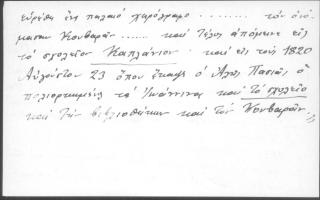 εὑρέθη εἰς παλαιὸ χειρόγραφο ........ τὸν ὀνό-
μασαν Κουβαρᾶν ...... καὶ τέλος ἀπόμεινε εἰς
τὸ σχολεῖον Καπλάνειον · καὶ εἰς τοὺς 1820
Αὐγούστου 23 ὅπου ἔκαψε ὁ Ἀλῆ Πασιᾶς, ὁ
πολιορκημένος τὰ Ἰωάννινα καὶ τὸ σχολεῖο
καὶ τὴν βιβλιοθήκην καὶ τὸν Κουβαρᾶν,,